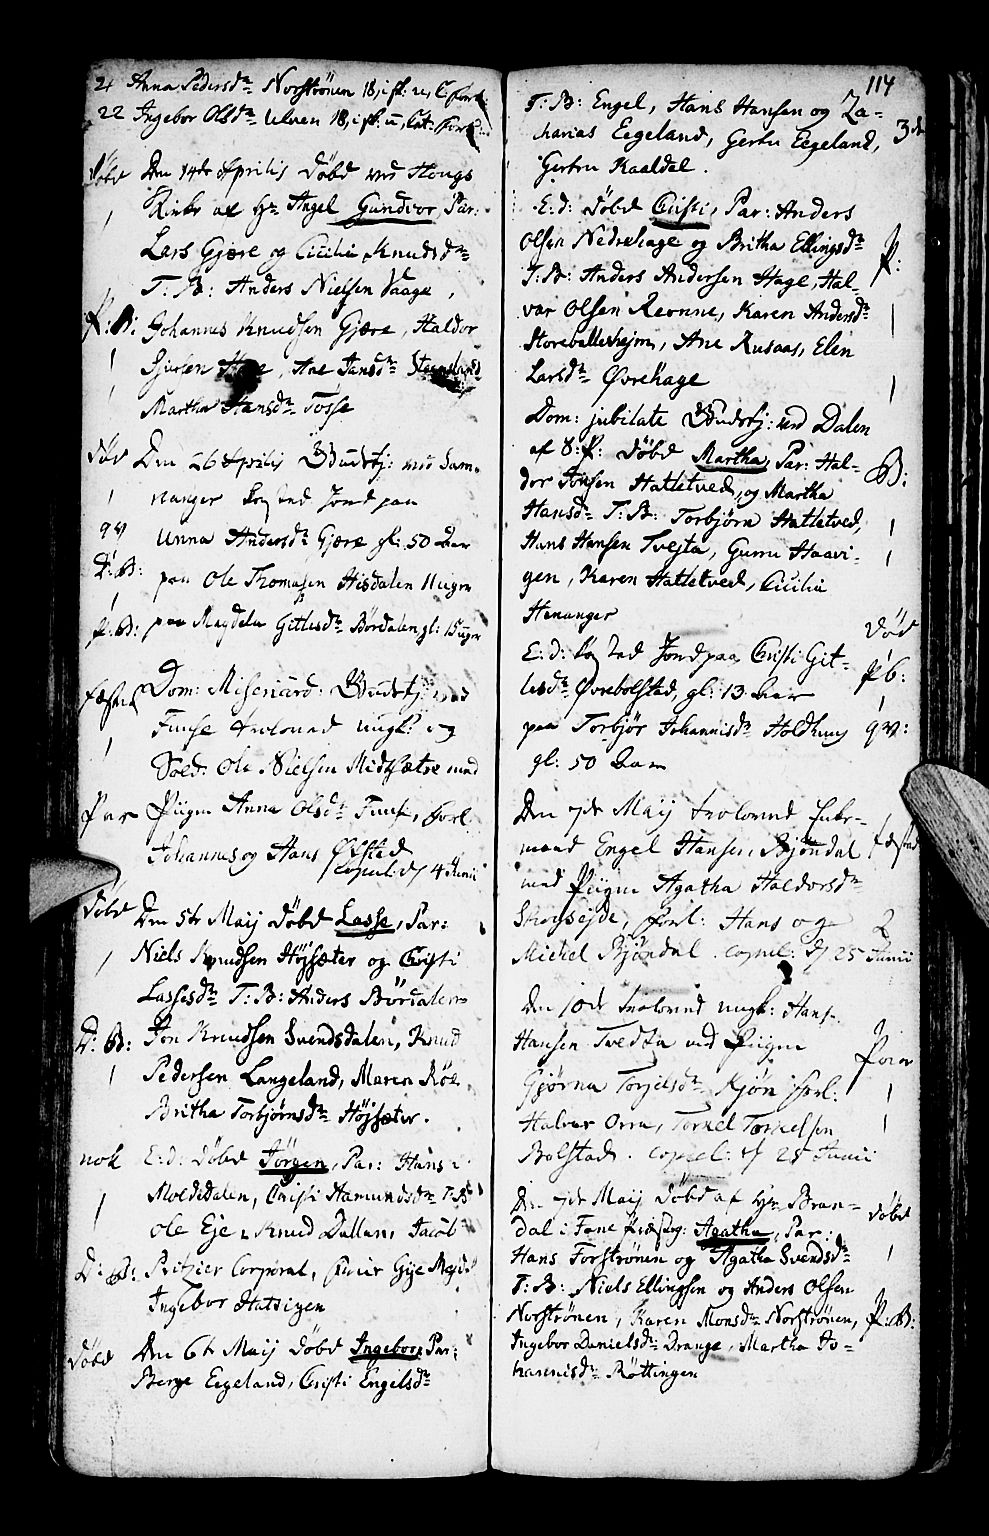 21 Anna Pedersdr Norströnen 18,
22 Ingebor Olsdr Ulven 18,
Döbt Den 14de Aprilis Döbt ved Hougs
Kirke af Hr Angel Gundvor, Par:
Lars Gjære og Cicilie Knudsdr
T: B: Anders Nielsen Vaage,
P: B: Johannes Knudsen Gjære, Haldor
Sjursen Hage, Ane Jansdr
Martha Hansdr Tösse
Död Den 26 Aprilis Gudstj: ved Sam-
nanger Kastad Jord paa
qv Unna Andersdr Gjære gl: 50 Aar
D: B: paa Ole Thomasen Hisdalen 11 uger
P: B: paa Magdela Gitlesdr Bördalen gl: 15 uger
fæsted Dom: Misericord: Gudstj: ved
Fuuse trolovned ungk: og
Sold: Ole Nielsen Midtsætre med
Par Piigen Anna Olsdr Fuuse, Forl:
Johannes og Hans Ölstad
copul: d/ 4 Junii
Döbt Den 5te Maij Döbt Lasse, Par:
Niels Knudsen Höjsæter og Christi
Lassesdr T: B: Anders Bördalen
D: B: Jon Knudsen Svendsdalen, Knud
Pedersen Langeland, Maren Röe,
Britha Torbjörnsdr Höjsæter.
nok E: d: Döbt Jörgen, Par: Hans
Moldedalen, Christi Hamundsdr T: B:
Ole Eje, Knud Dallen, Jacob
D: B: Pritzier Corporal,
Ingebor Hatvigen
Döbt Den 6te Maij Döbt Ingebor, Par:
Berge Eegeland, Christi Engelsdr
114
T: B: Engel, Hans Hansen og Za-
charias Eegeland, Gertru Eegeland, 3de
Gertru Kaaldal.
E: d: Döbt Christi, Par: Anders
Olsen Nedrehage og Britha Ellingsdr P:
T: B: Anders Andersen Hage, Hal-
var Olsen Revnne, Karen Andersdr
Storeballesheim, Ane Rusaas, Elen
Larsdr Övrehage
Dom: jubilate Gudstj: ved Dalen
af S: P: Döbt Martha, Par: Hal- B:
dor Jonsen Hatletved, og Martha
Hansdr T: B: Torbjörn Hatletved,
Hans Hansen Tvejta, Gurru Haavi-
gen, Karen Hatletved, Cicilia
Henanger
Död
E: d: Kastad Jord paa Christi Git- P: b:
lesdr Övrebolstad, gl: 13 Aar
paa Torbjör Johannisdr Holdhuus qv:
gl: 50 Aar
Den 7de Maij trolovned Enke-
mand Engel Hansen Bjöndal fæsted
med Piigen Agatha Haldorsdr
Skougsejde, Forl: Hans og 2
Michel Bjöndal. copul: d/ 25 Junii
Den 10de trolovned ungk: Hans
Hansen Tvedta ved Piigen Par
Gjörna Torgilsdr Kjön Forl:
Halvar Orra, Torkel Torkelsen
Bolstad. copul: d/ 25 Junii
Den 7de Maij Döbt af Hr Bran- Döbt
dal i Fane Præsteg: Agatha, Par:
Hans Forströnen og Agatha Svendsdr
T: B: Niels Ellingsen og Anders Olsen
Norströnen, Karen Monsdr Norströnen, P: B:
Ingebor Danielsdr Drange, Martha Jo-
hannisdr Röttingen